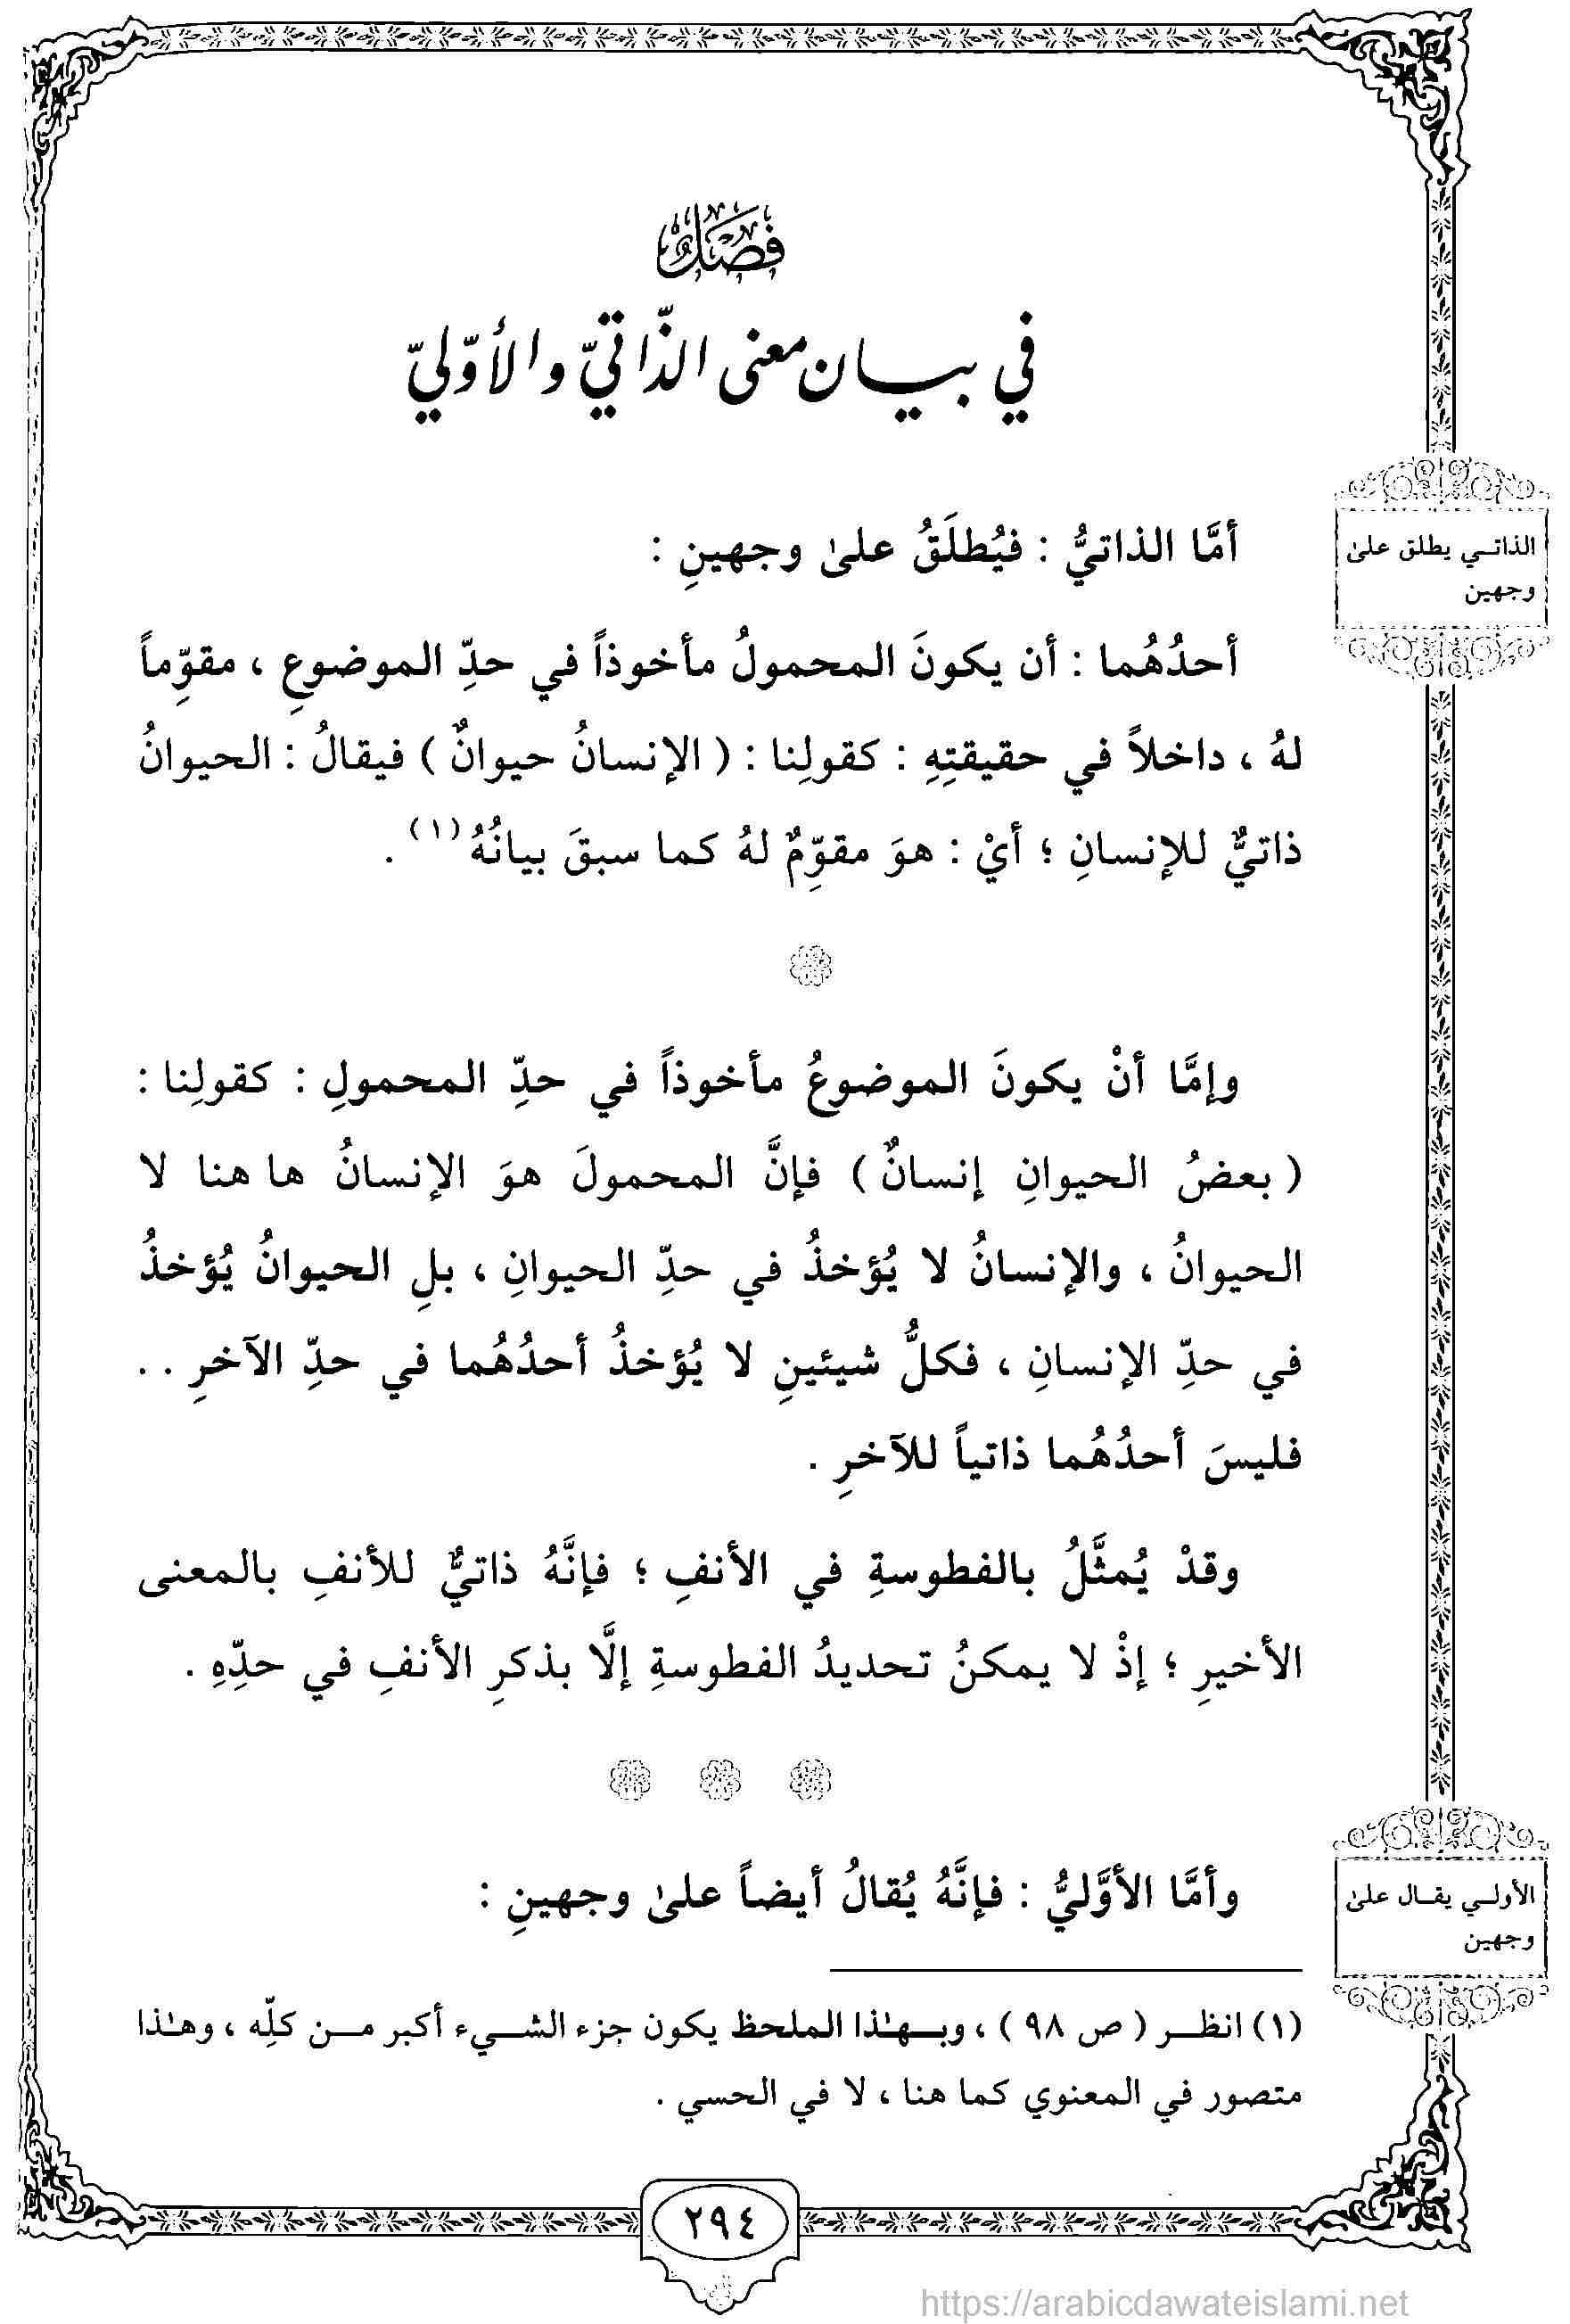 فَصْلٌ
في بيان معنى الذّاتيّ والأوّليّ
أمَّا الذاتيُّ : فيُطلَقُ علىٰ وجهينِ :
الذاتي يطلق علىٰ
وجهين
أحدُهُما : أن يكونَ المحمولُ مأخوذاً في حدِّ الموضوعِ ، مقوِّماً
لهُ ، داخلاً في حقيقتِهِ : كقولِنا : ( الإنسانُ حيوانٌ ) فيقالُ : الحيوانُ
ذاتيٌّ للإنسانِ ؛ أيْ : هوَ مقوِّمٌ لهُ كما سبقَ بيانُهُ(١) .
وإمَّا أنْ يكونَ الموضوعُ مأخوذاً في حدِّ المحمولِ : كقولِنا :
( بعضُ الحيوانِ إنسانٌ ) فإنَّ المحمولَ هوَ الإنسانُ ها هنا لا
الحيوانُ ، والإنسانُ لا يُؤخذُ في حدِّ الحيوانِ ، بلِ الحيوانُ يُؤخذُ
في حدِّ الإنسانِ ، فكلُّ شيئينِ لا يُؤخذُ أحدُهُما في حدِّ الآخرِ . .
فليسَ أحدُهُما ذاتياً للآخرِ .
وقدْ يُمثَّلُ بالفطوسةِ في الأنفِ ؛ فإنَّهُ ذاتيٌّ للأنفِ بالمعنى
الأخيرِ ؛ إذْ لا يمكنُ تحديدُ الفطوسةِ إلَّا بذكرِ الأنفِ في حدِّهِ .
وأمَّا الأوَّليُّ : فإنَّهُ يُقالُ أيضاً علىٰ وجهينِ :
الأولي يقال علىٰ
وجهين
(١) انظر ( ص ٩٨ ) ، وبهٰذا الملحظ يكون جزء الشيء أكبر من كلِّه ، وهٰذا
متصور في المعنوي كما هنا ، لا في الحسي .
٢٩٤
https://arabicdawateislami.net